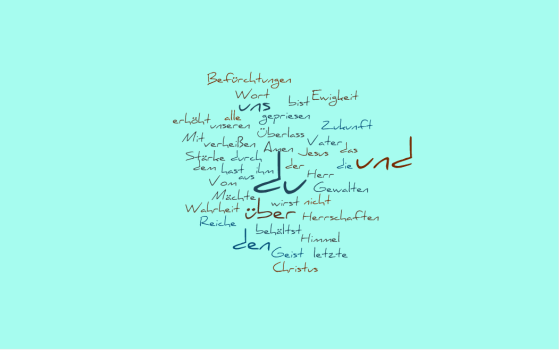 Befürchtungen
Wort
uns bist Ewigkeit
erhöht alle gepriesen
unseren Zukunft
Mit Überlass
verheißen Vater und
Stärke durch Amen Jesus das
dem hast ihm der die
Vom aus du Herr
Gewalten
Mächte wirst nicht
Wahrheit über Herrschaften
Reiche behältst
den Himmel
Geist letzte
Christus